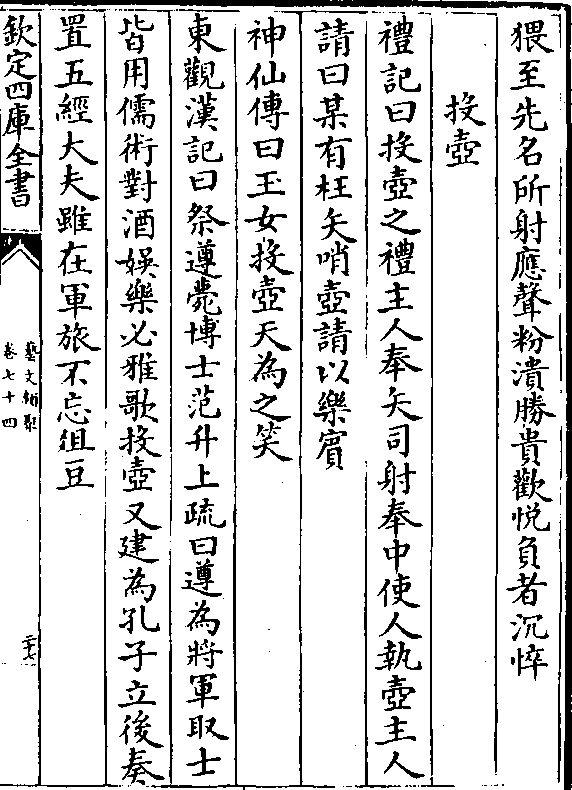 猥至先名所射應聲粉潰勝貴歡悦負者沉悴
投壺
禮記曰投壺之禮主人奉矢司射奉中使人執壺主人
請曰某有枉矢哨壺請以樂賓
神仙傳曰玉女投壺天為之笑
東觀漢記曰祭遵薨博士范升上疏曰遵為將軍取士
皆用儒術對酒娛樂必雅歌投壺又建為孔子立後奏
置五經大夫雖在軍旅不忘俎豆
欽定四庫全書
藝文類聚
卷七十四
二十七